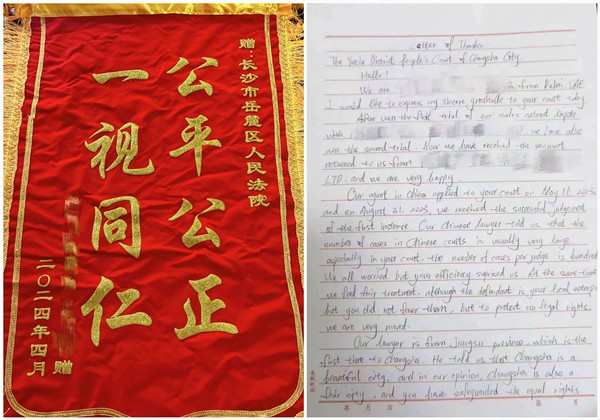 赠：长沙市岳麓区人民法院
公平公正
一视同仁
二〇二四年四月
赠
Letter of Thanks
The Yuelu District People's Court of Changsha City
Hello!
We are from Dubai, UAE
I would like to express my sincere gratitude to your court today
After won the first trial of our sales contract dispute
with , we have also
won the second trial. Now we have received the payment
returned to us from
LTD. and we are very happy.
Our agent in China applied to your court on May 16 2023,
and on August 21. 2023, we received the successful judgement
of the first instance Our Chinese lawyer told us that the
number of cases in Chinese courts is usually very large
especially in your court, the number of cases per judge is hundred
We all worried but your efficiency suprised us. At the same time
we feel fair treatment, although the defendant is your local enterprise
but you did not favor them, but to protect our legal rights,
we are very moved.
Our lawyer is from Jiangsu province, which is the
first time to Changsha. He told us that Changsha is a
beautiful city, and in our opinion, Changsha is also a
fair city, and you have safeguarded the equal rights
年 月 日 第 页